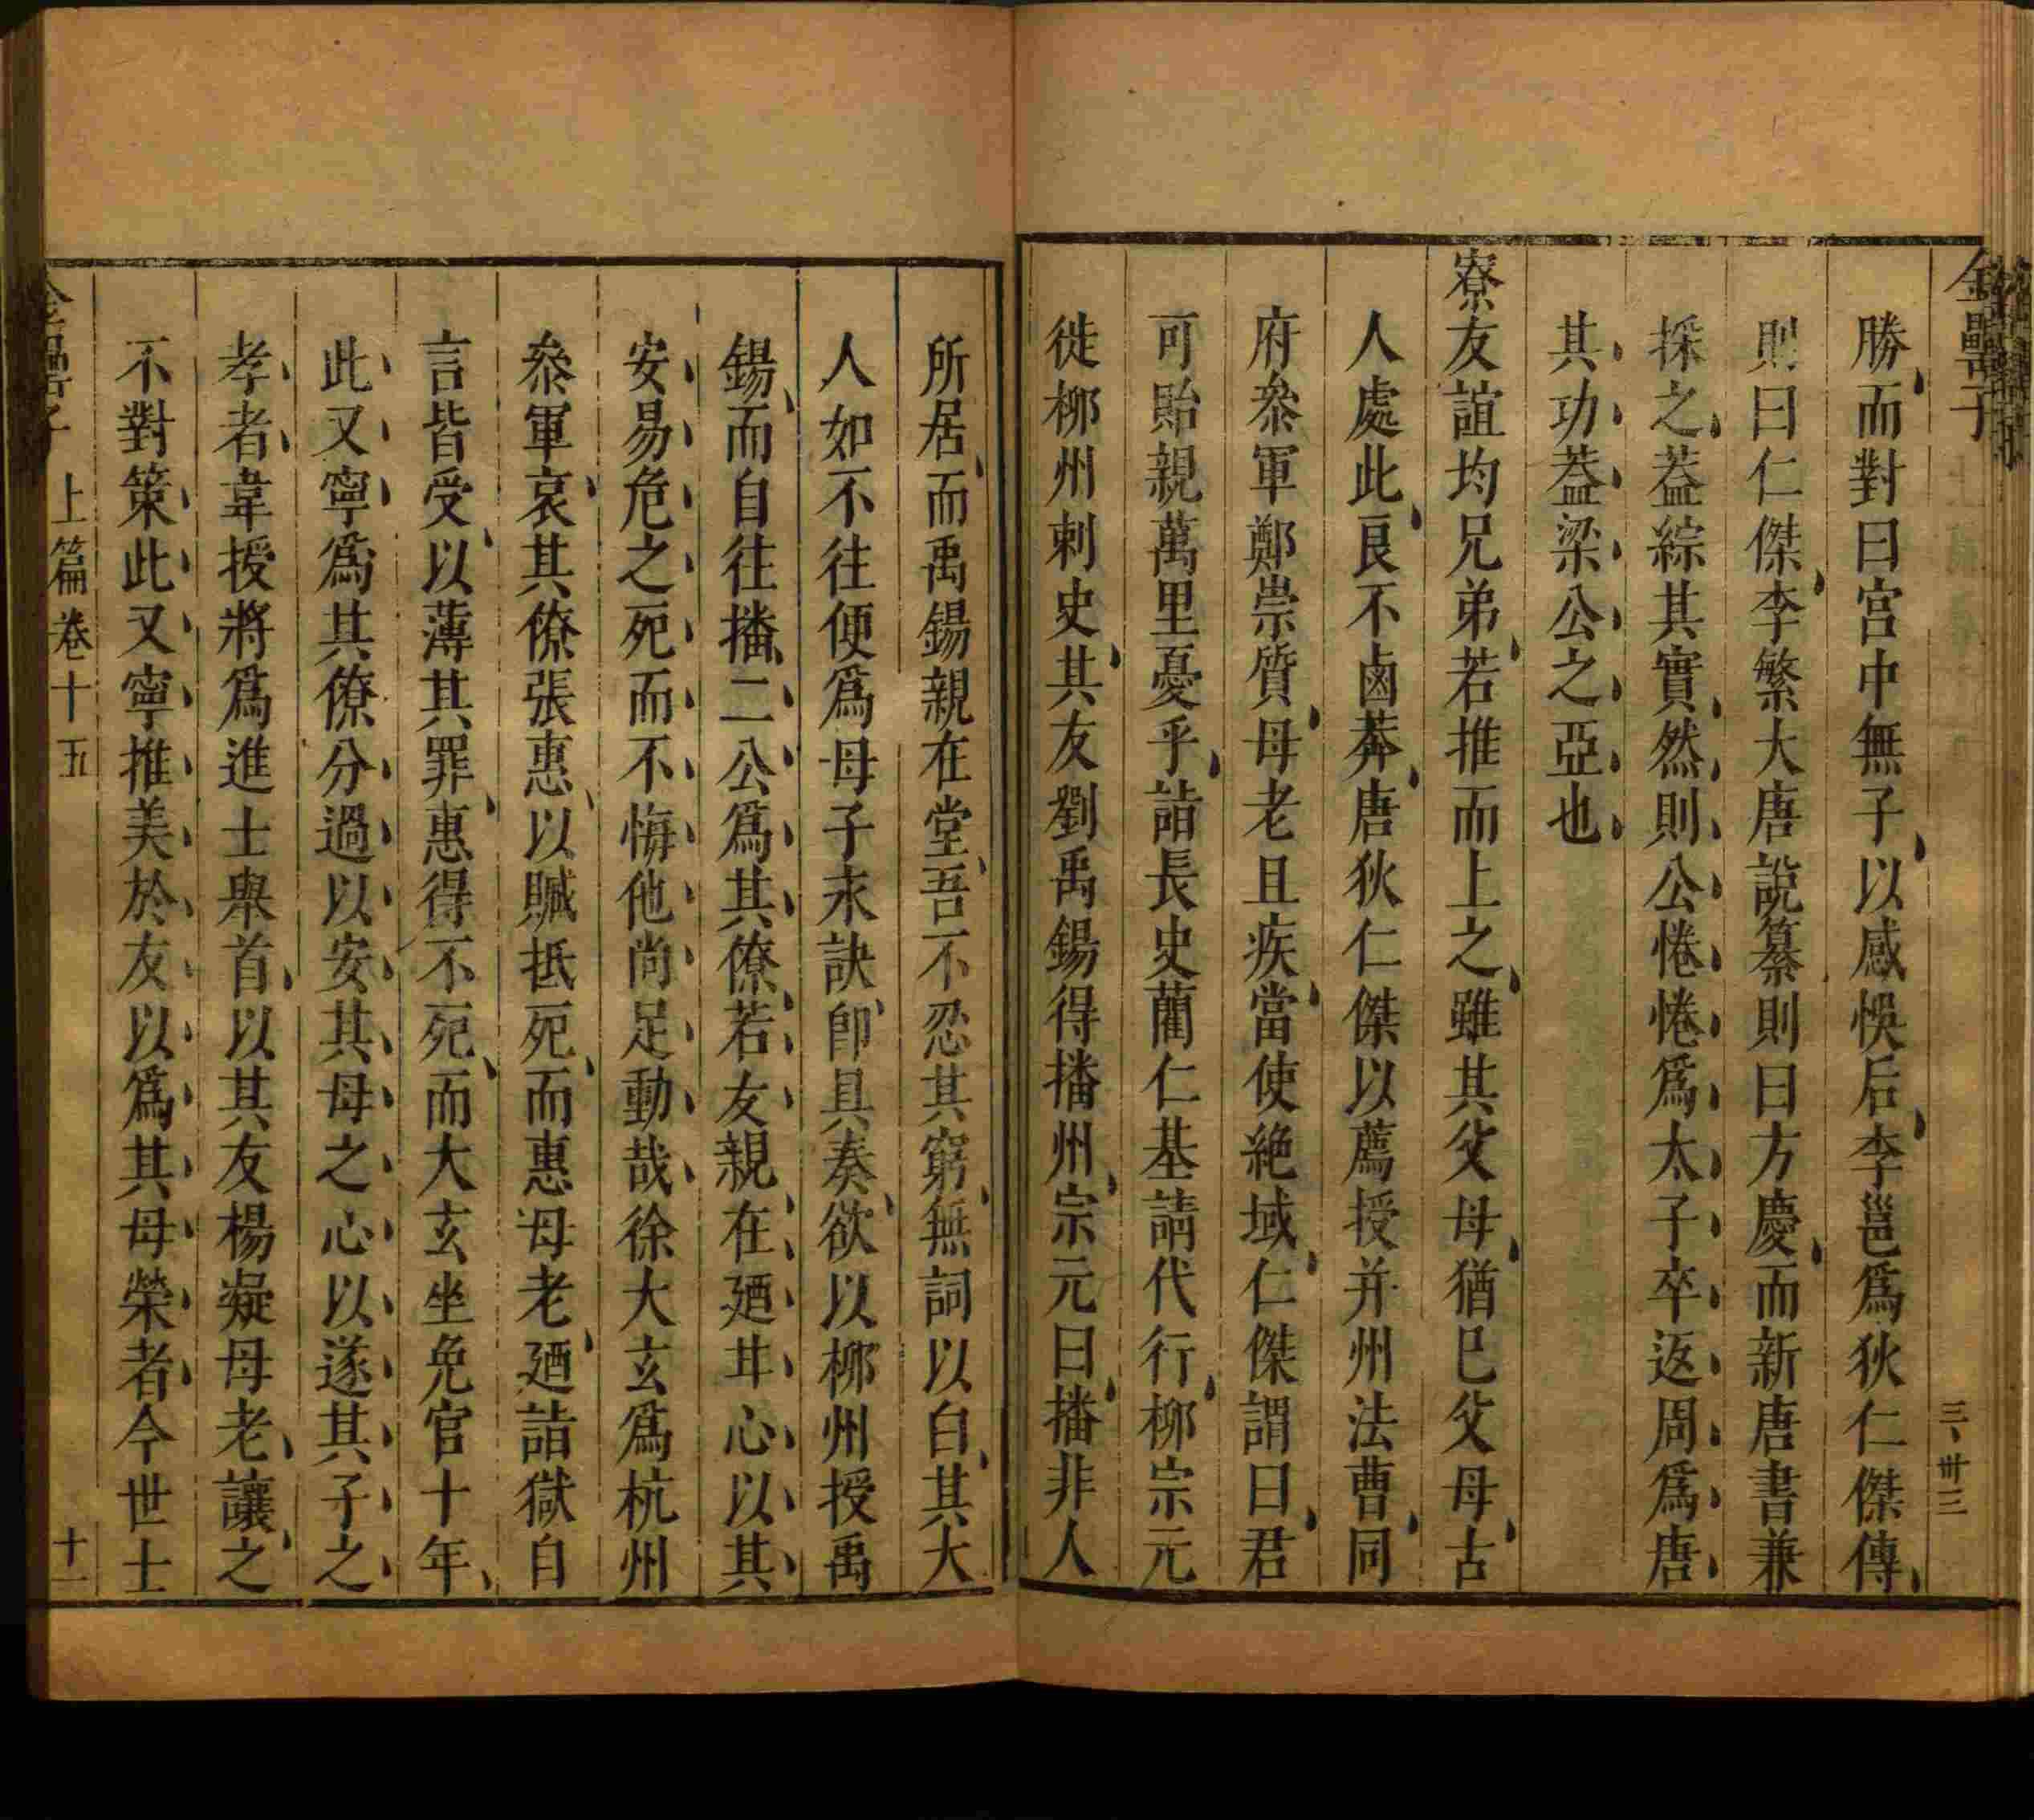 金罍子
三、卅三
勝而對曰宫中無子以感悞后李邕爲狄仁傑傳
則曰仁傑李繁大唐說纂則曰方慶而新唐書兼
採之葢綜其實然則公惓惓爲太子卒返周爲唐
其功葢梁公之亞也
寮友誼均兄弟若推而上之雖其父母猶巳父母古
人處此良不鹵莽唐狄仁傑以薦授并州法曹同
府叅軍鄭崇質母老且疾當使絶域仁傑謂曰君
可貽親萬里憂乎詣長史藺仁基請代行柳宗元
徙柳州刺史其友劉禹錫得播州宗元曰播非人
所居而禹錫親在堂吾不忍其窮無詞以白其大
人如不往便爲母子永訣卽具奏欲以柳州授禹
錫而自往播二公爲其僚若友親在廼甘心以其
安易危之死而不悔他尚足動哉徐大玄爲杭州
叅軍哀其僚張惠以贓抵死而惠母老廼詣獄自
言皆受以薄其罪惠得不死而大玄坐免官十年
此又寧爲其僚分過以安其母之心以遂其子之
孝者韋授將爲進士舉首以其友楊凝母老讓之
不對策此又寧推美於友以爲其母榮者今世士
上篇卷十五
十一